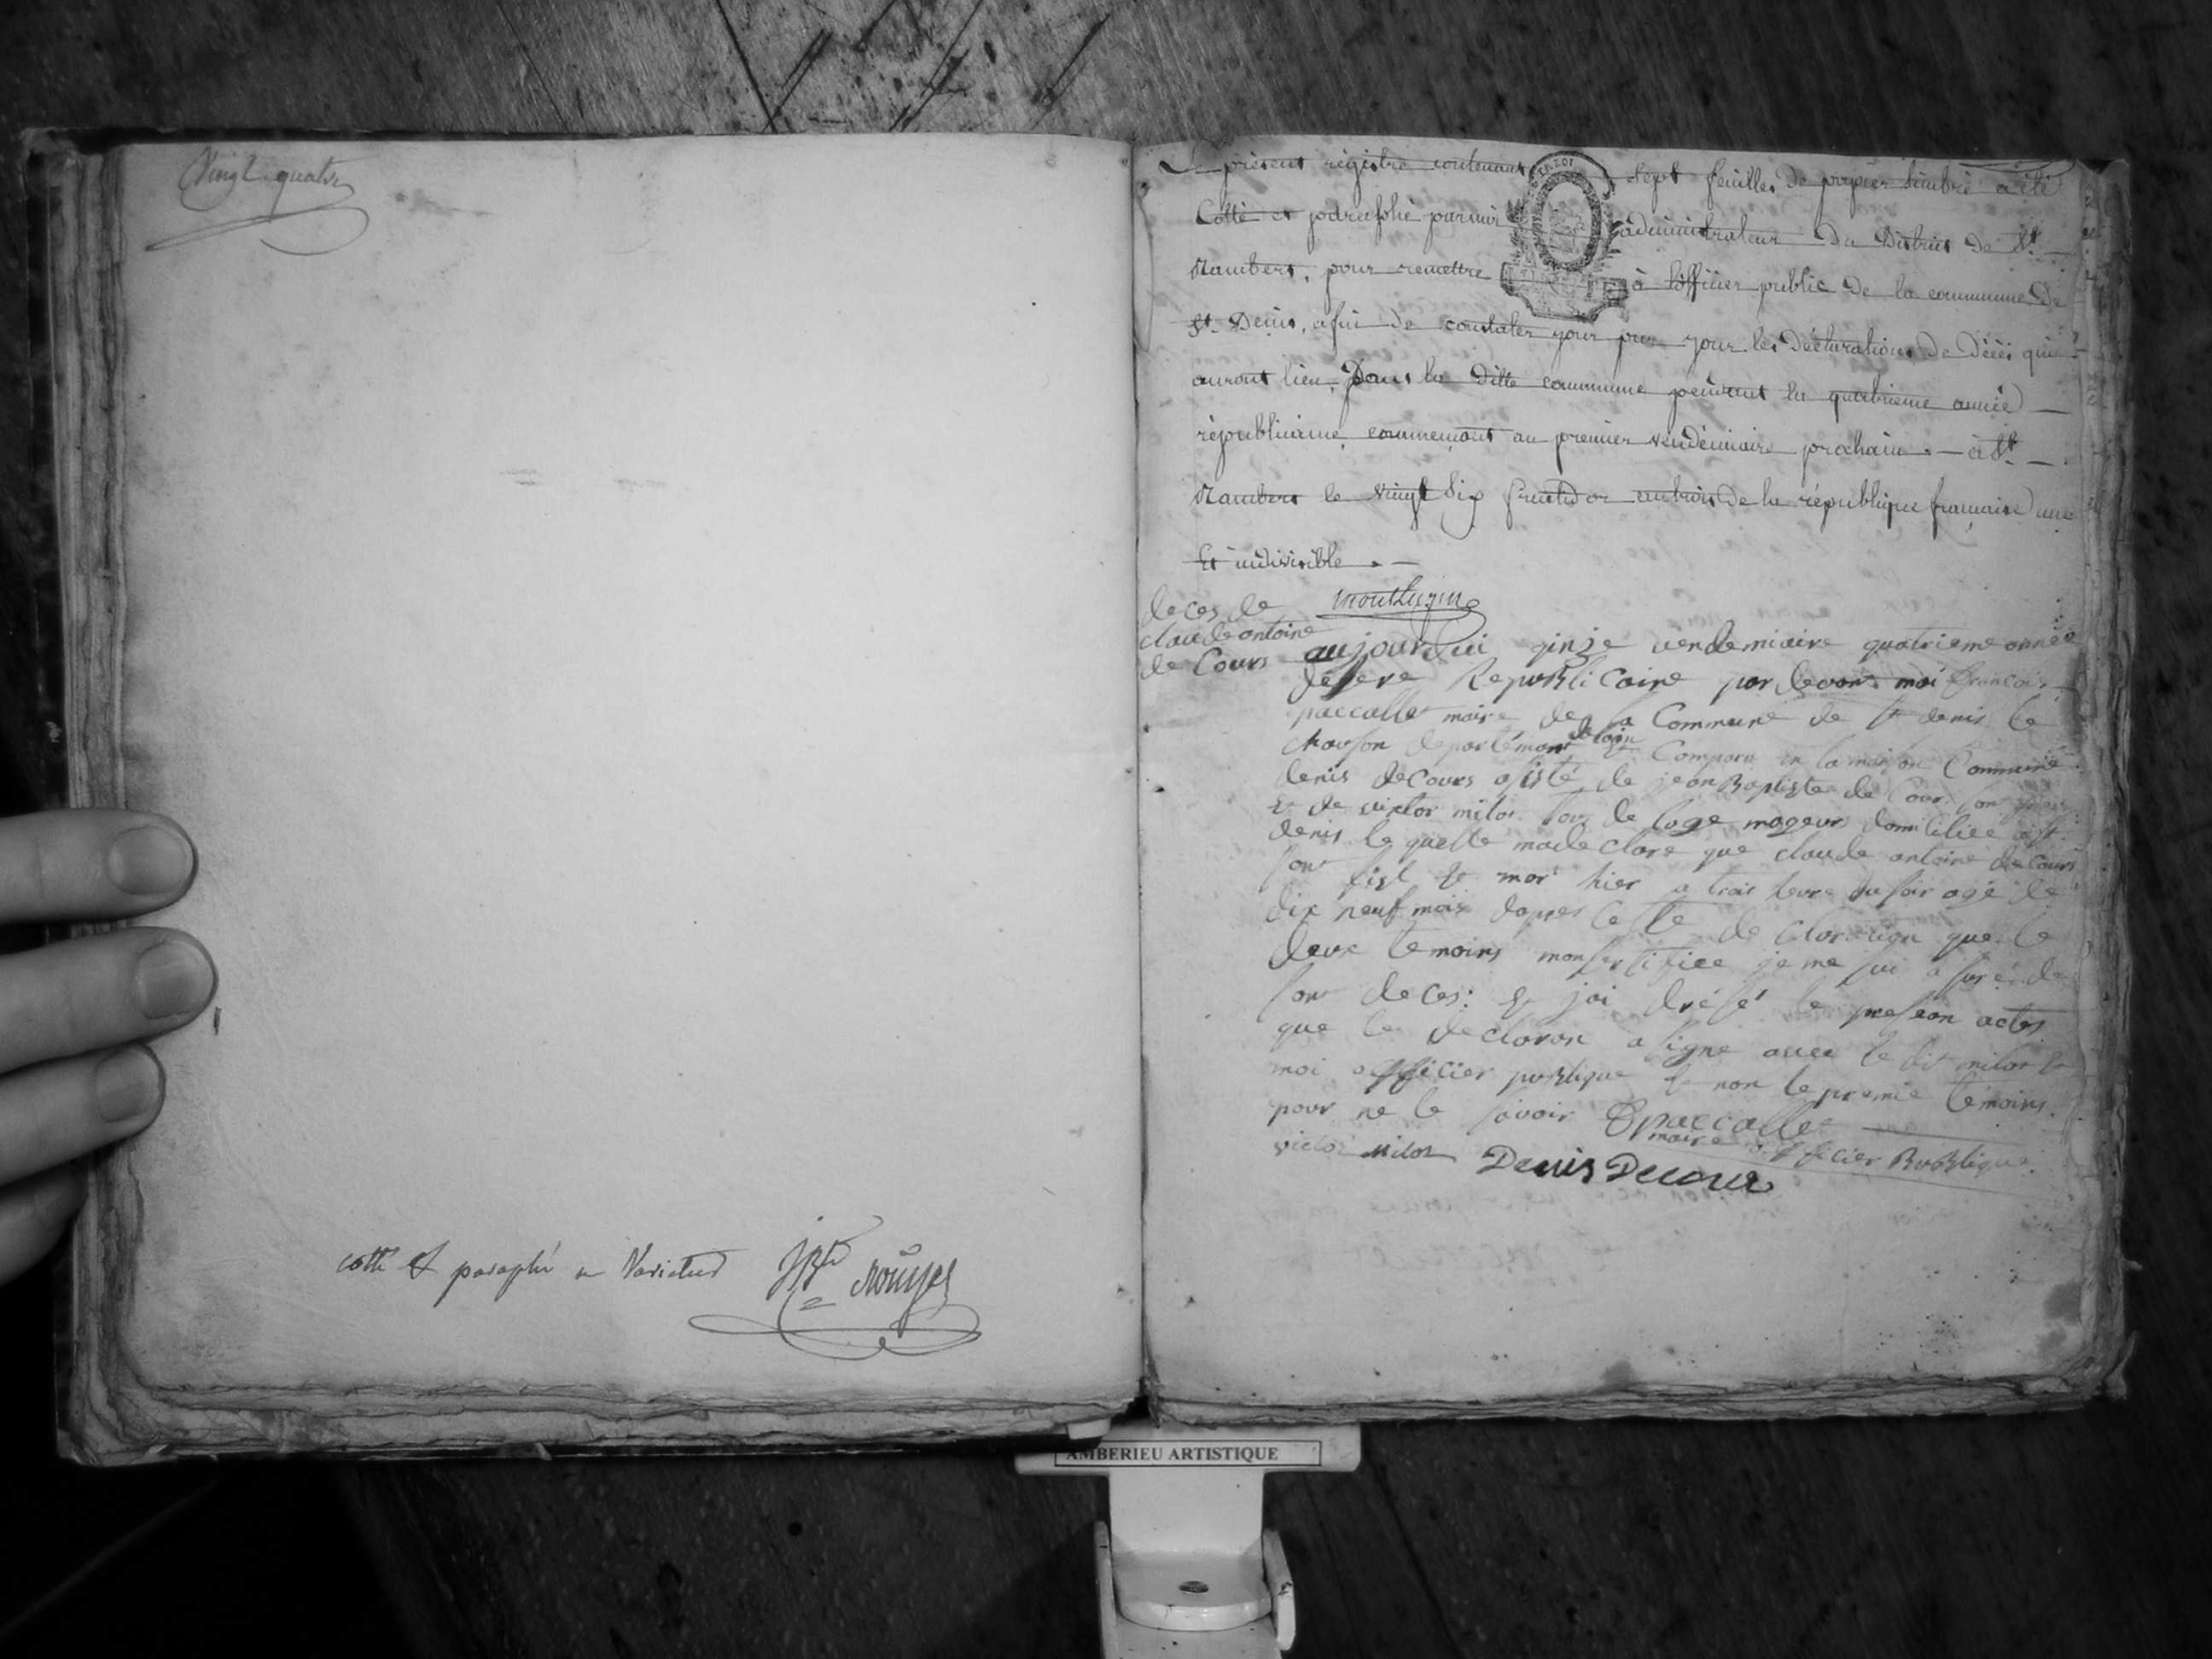 Vingt quatre
cotté et paraphé ne Varietur JBte Rouyer
Le présent régistre contenant sept feuilles de papier timbré a été
Cotté et parafolié par moi administrateur du District de St. —
Rambert, pour remettre à l'officier public de la commune De
St. Denis, afin de constater jour par jour les déclarations de décès qui
auront lieu, Dans la ditte commune pendant la quatrieme année —
républicaine, commençant au premier vendémiaire prochain. — à St. —
Rambert le vingt Six fructidor an trois De la république française une
Et indivisible. —
Montluzin
deces de
claude antoine
de Cours
aujourdui qinze vendemiaire quatrieme année
de lere Republicaine par devant moi francois
paccallet maire de la Commune de st denis le
Chauson departemant de lain Comparu en la maison Commune
denis deCours asisté de jean Baptiste de Cour son frere
Et de victor milot tous de lage mageur domiciliee a st
denis le quelle ma de clare que claude antoine deCours
sont fist Et mort hier a trois heure du soir agé de
dix neuf mois dapres cette de claration que le
deux temoins mon sertifiee je me sui asuré de
sont deces: Et jai drésé le presean actes
que le declaran a signe avec le dit milot Et
moi officier publique Et non le premié témoins
pour ne le savoir paccallet
maire officier Publique
victor Milot Denis Decour
AMBERIEU ARTISTIQUE